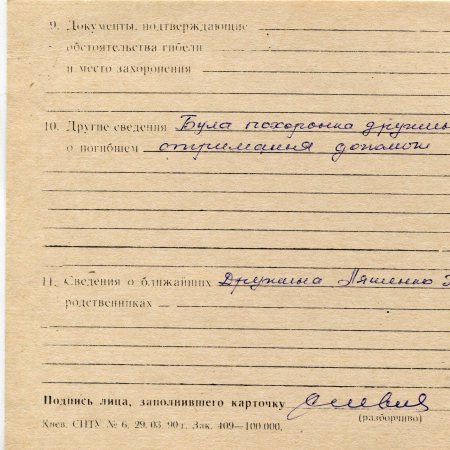 9. Документы, подтверждающие
обстоятельства гибели
и место захоронения
10. Другие сведения Була похоронка дружин
о погибшем отримання допомоги
11. Сведения о ближайших Дружина Ляшенко З
родственниках
Подпись лица, заполнившего карточку
(разборчиво)
Киев. СПТУ № 6, 29. 03. 90 г. Зак. 409—100 000.